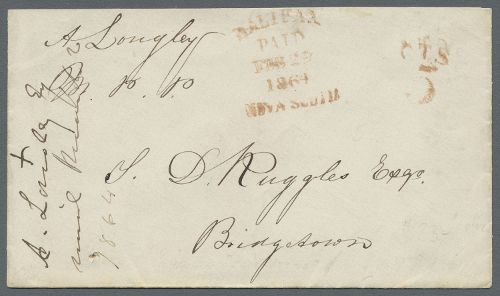 A. Longley
M. P. P
HALIFAX
PAID
FEB 29
1864
NOVA SCOTIA
CTS
5
S. D. Ruggles Esqr.
Bridgetown
A. Longley Esq
1864